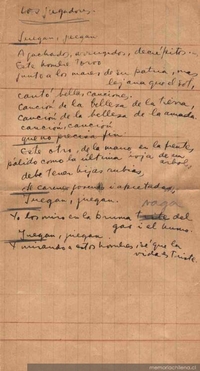 Los jugadores.
Juegan, juegan
Agachados, arrugados, decrépitos...
Este hombre torvo
junto a los mares de su patria, mas
lejana que el sol,
cantó bellas canciones.
Canción de la belleza de la tierra,
canción de la belleza de la amada
canción, canción
que no precisa fin.
Este otro, de la mano en la frente,
pálido como la última hoja de un
arbol,
debe tener hijas rubias,
de carnes
Juegan, juegan.
vaga
Yo los miro en la bruma del
gas i el humo.
Juegan, juegan.
Y mirando a estos hombres sé que la
vida es triste.
memoriachilena.cl